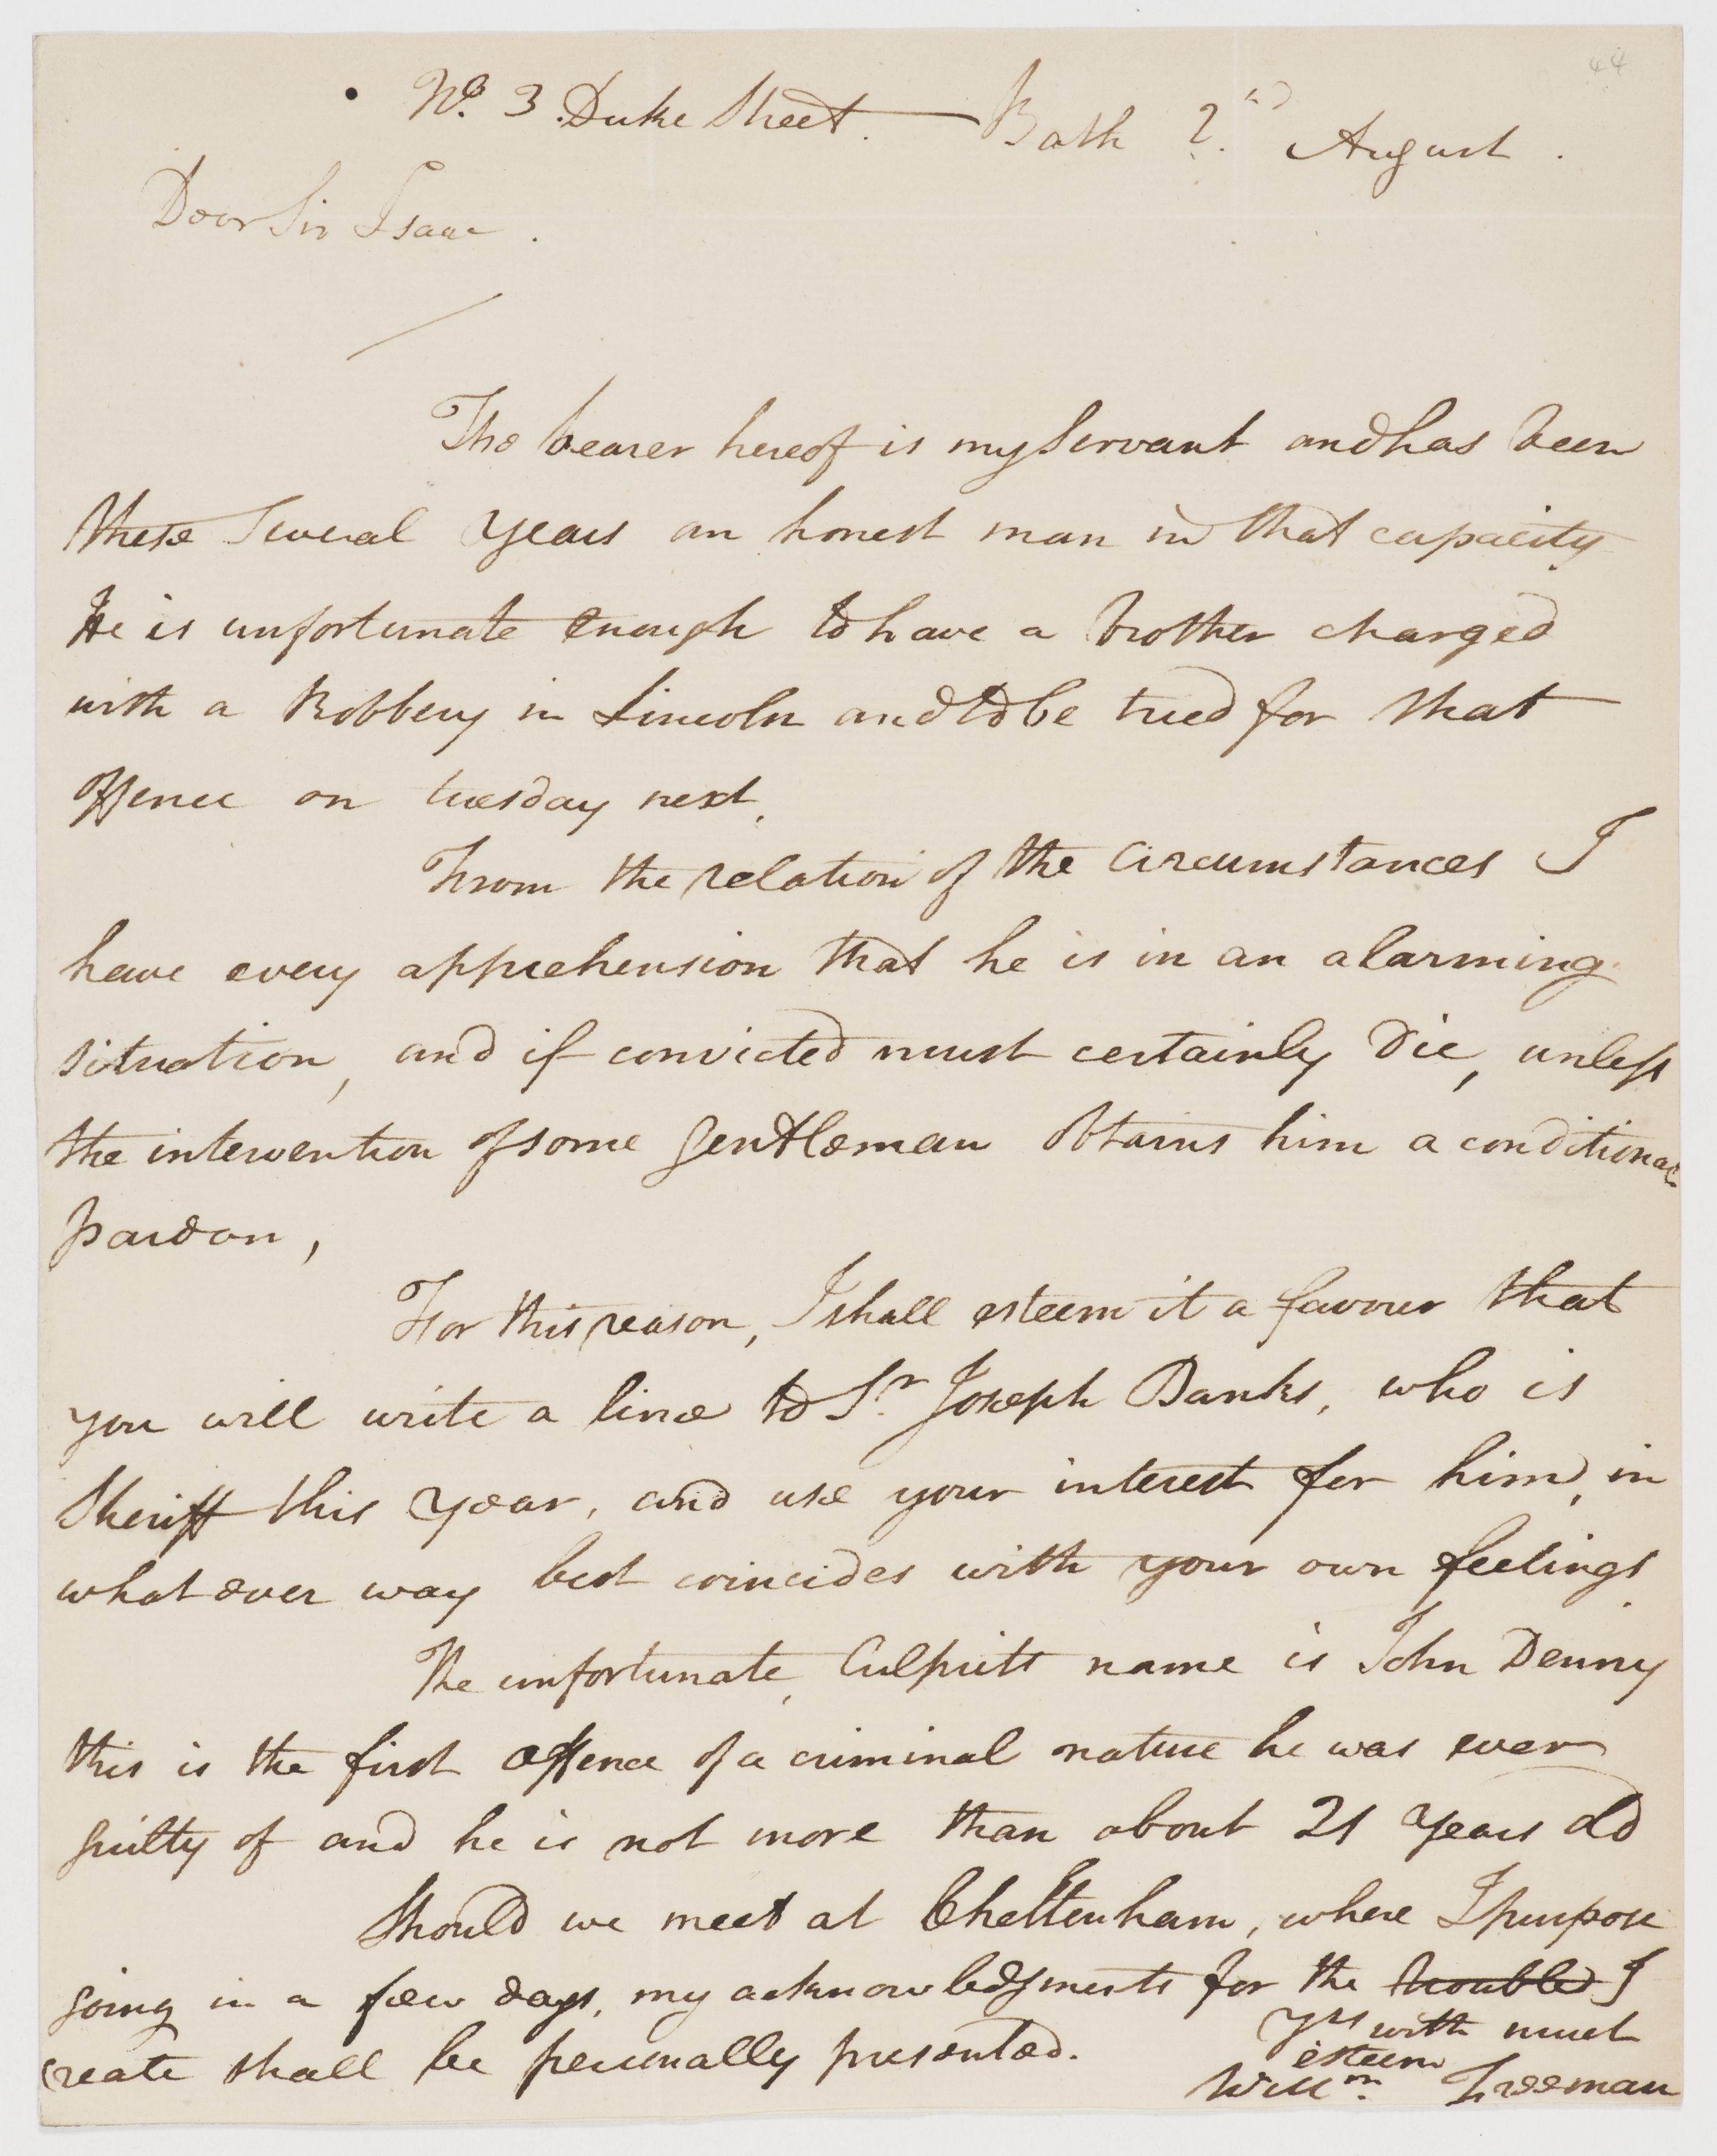 44
No. 3. Duke Street. — Bath 2.nd August.
Dear Sir Isaac.
The bearer hereof is my Servant and has been
these several years an honest man in that capacity
He is unfortunate enough to have a brother charged
with a Robbery in Lincoln and to be tried for that
offence on tuesday next.
From the relation of the Circumstances I
have every apprehension that he is in an alarming
situation, and if convicted must certainly Die, unless
the intervention of some Gentleman obtains him a conditional
pardon,
For this reason, I shall esteem it a favour that
you will write a line to Sr. Joseph Banks, who is
Sheriff this year, and use your interest for him, in
what ever way best coincides with your own feelings.
The unfortunate, Culprits name is John Denny
this is the first offence of a criminal nature he was ever
guilty of and he is not more than about 21 years old
Should we meet at Cheltenham, where I purpose
going in a few days, my acknowledgments for the troubled I
create shall be personally presented.
yrs with much
esteem
Willm. Freeman